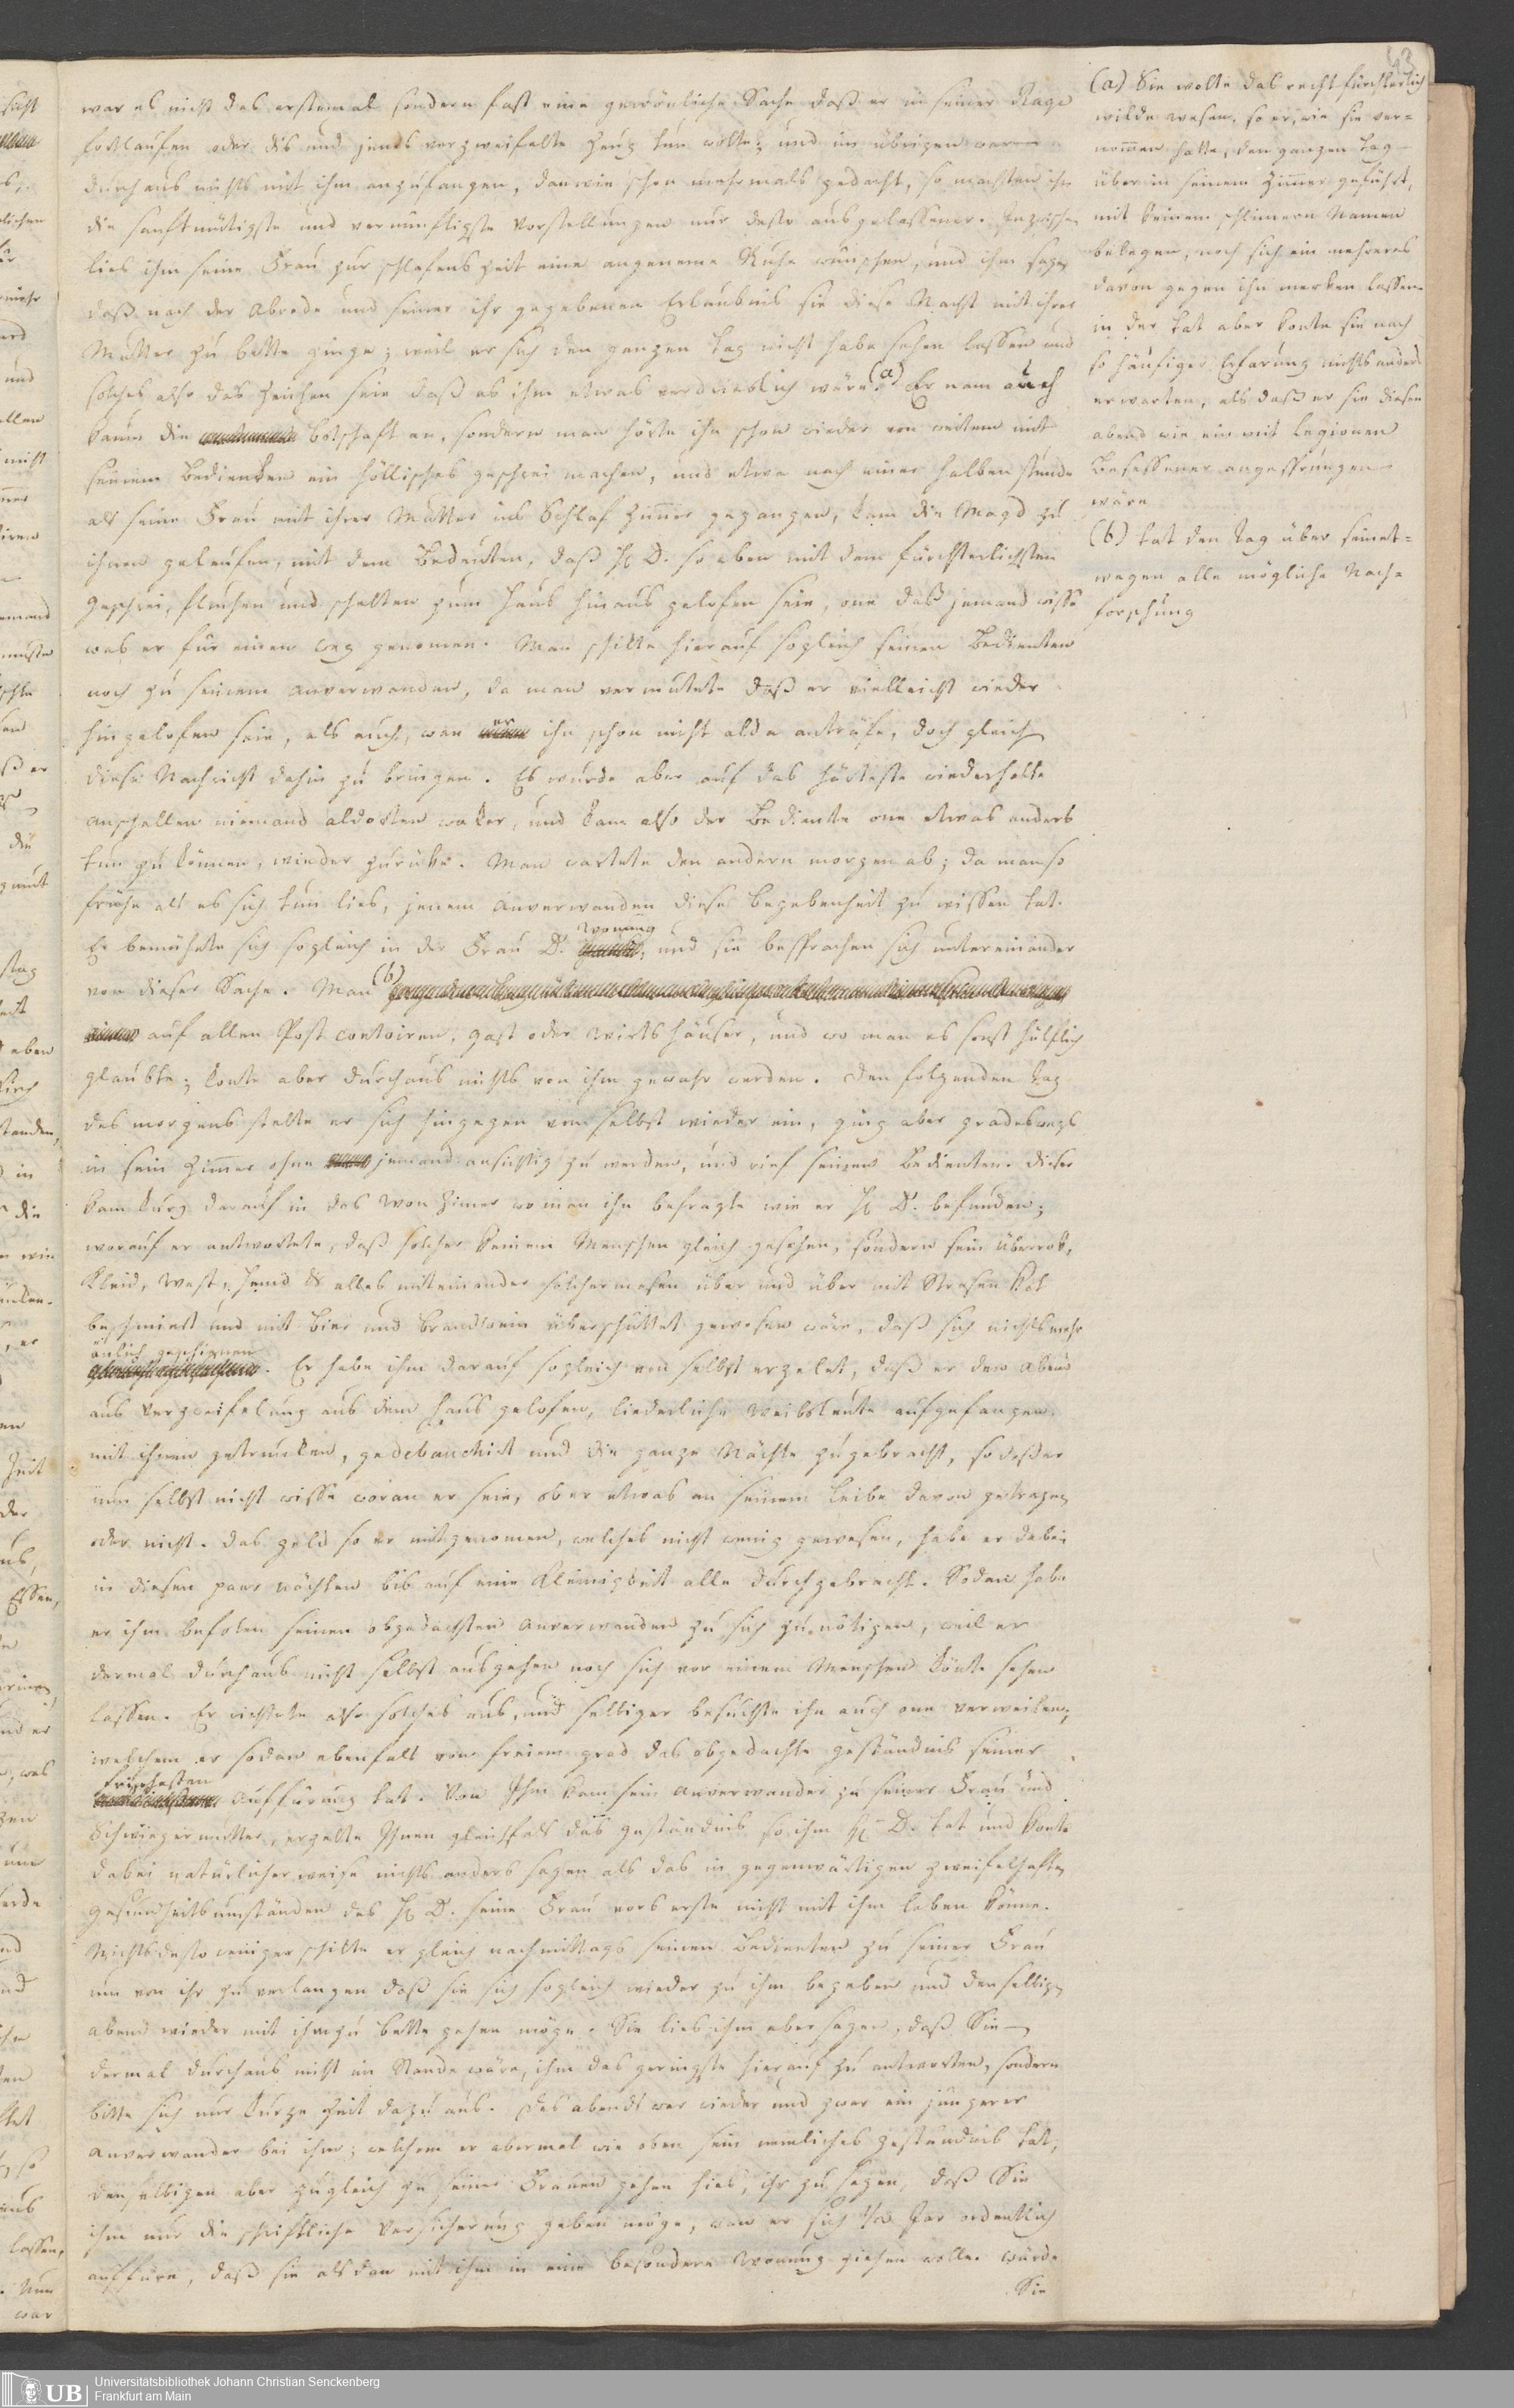 war es nicht das erstemal sondern fast eine gewönliche Sache daß er in seiner Rage
fortlaufen oder dis und jenes verzweifelte Zeug tun wolte; und im übrigen war
durchaus nichts mit ihm anzufangen, dan wie schon mehrmals gedacht, so machten ihn
die sanftmütigste und vernünftigste Vorstellungen nur desto ausgelassener. Inzwischen
lies ihm seine Frau zur schlafenszeit eine angeneme Ruhe wünschen, und ihm sagen
daß nach der Abrede und seiner ihr gegebenen Erlaubnis sie diese Nacht mit ihrer
Mutter zu bette ginge; weil er sich den ganzen tag nicht habe sehen lassen und
solches also das Zeichen sein daß es ihm etwas verdrieslich wäre (a) Er nam auch
kaum die botschaft an, sondern man hörte ihn schon wieder von weitem mit
seinem Bedienten ein höllisches geschrei machen, und etwa nach einer halben stunde
als seine Frau mit ihrer Mutter ins Schlaf zimer gegangen, kam die Magd zu
ihnen gelaufen, mit dem Bedeuten, daß H D. so eben mit dem fürchterlichsten
Geschrei, fluchen und schelten zum Haus hinaus gelofen sein, one daß jemand wisse
was er für einen weg genomen. Man schikte hierauf sogleich seinen Bedienten
noch zu seinem anverwanden, da man vermutete daß er vielleicht wieder
hingelofen sein, als auch, wan er ihn schon nicht alda anträfe, doch gleich
diese Nachricht dahin zu bringen. Es wurde aber auf das härteste wiederholte
anschellen niemand aldorten waker, und kam also der Bediente one etwas anders
tun zu können, wieder zurüke. Man wartete den andern morgen ab; da man so
frühe als es sich tun lies, jenem Anverwanden diese begebenheit zu wissen tat.
Er bemühete sich sogleich in der Frau D. wonung, und sie besprachen sich untereinander
von dieser Sache. Man (b)
auf allen Post contoiren, gast oder wirtshäuser, und wo man es sonst hülflich
glaubte; konte aber durchaus nichts von ihm gewahr werden. Den folgenden tag
des morgens stelte er sich hingegen von selbst wieder ein, ging aber gradeswegs
in sein Zimer ohne jemand ansichtig zu werden, und rief seinen Bedienten. Dieser
kam kurz darauf in das wonzimer wo man ihn befragte wie er H D. befunden;
worauf er antwortete, daß solcher keinem Menschen gleich gesehen, sondern sein überrok,
Kleid, West, Hemd & alles miteinander solchermasen über und über mit Strasen Kot
beschmiert und mit bier und brandwein überschüttet gewesen wäre, daß sich nichts mehr
änlich geschienen. Er habe ihm darauf sogleich von selbst erzelet, daß er den Abend
aus verzweifelung aus dem Haus gelofen, liederliche weibsleute aufgefangen,
mit ihnen getrunken, gedebauchirt und die ganze Nächte zugebracht, so daß er
nun selbst nicht wisse woran er sein, ob er etwas an seinem Leibe davon getragen
oder nicht. Das geld so er mitgenomen, welches nicht wenig gewesen, habe er dabei
in diesen paar nächten bis auf eine Kleinigkeit alle durchgebracht. Sodan habe
er ihm befolen seinen obgedachten Anverwanden zu sich zu nötigen, weil er
dermal durchaus nicht selbst ausgehen noch sich vor einem Menschen könte sehen
lassen. Er richtete also solches aus, und selbiger besuchte ihn auch one verweilen;
welchem er sodan ebenfals von freien das obgedachte geständnis seiner
aufführung tat. Von Ihm kam sein Anverwander zu seiner Frau und
Schwiegermutter, erzelte Ihnen gleichfals das geständnis so ihm H D. tat und konte
dabei natürlicherweise nichts anders sagen als das in gegenwärtigen zweifelhaften
gesundheitsumständen des H D. seine Frau vors erste nicht mit ihm leben könne.
Nichtsdestoweniger schikte er gleich nachmittags seinen Bedienten zu seiner Frau
um von ihr zu verlangen daß sie sich sogleich wieder zu ihm begeben und denselbigen
abend wieder mit ihm zu bette gehen möge. Sie lies ihm aber sagen, daß Sie
dermal durchaus nicht im Stande wäre, ihm das geringste hierauf zu antworten, sondern
bitte sich nur kurze Zeit dazu aus. Des abends war wieder und zwar ein jüngerer
Anverwander bei ihm; welchem er abermal wie oben sein nemliches geständnis tat;
denselbigen aber zugleich zu seiner Frauen gehen hies, ihr zu sagen, daß Sie
ihm nur die schriftliche Versicherung geben möge, wan er sich 1/2 Jar ordentlich
aufführe, daß sie alsdan mit ihm in eine besondere Wonung ziehen wolle. Würde
Sie
(a) Sie wolte das recht fürchterlich
wilde wesen, so er, wie sie ver=
nommen hatte, den ganzen tag
über in seinem Zimer geführt,
mit keinem schlimern Namen
belegen, noch sich ein mehreres
davon gegen ihn merken lassen.
in der tat aber konte sie nach
so häufiger Erfarung nichts anders
erwarten, als daß er sie diesen
abend wie ein mit Legionen
Besessener angesprungen
wäre
(b) tat den tag über seinet=
wegen alle mögliche Nach=
forschung
Universitätsbibliothek Johann Christian Senckenberg
Frankfurt am Main
UB